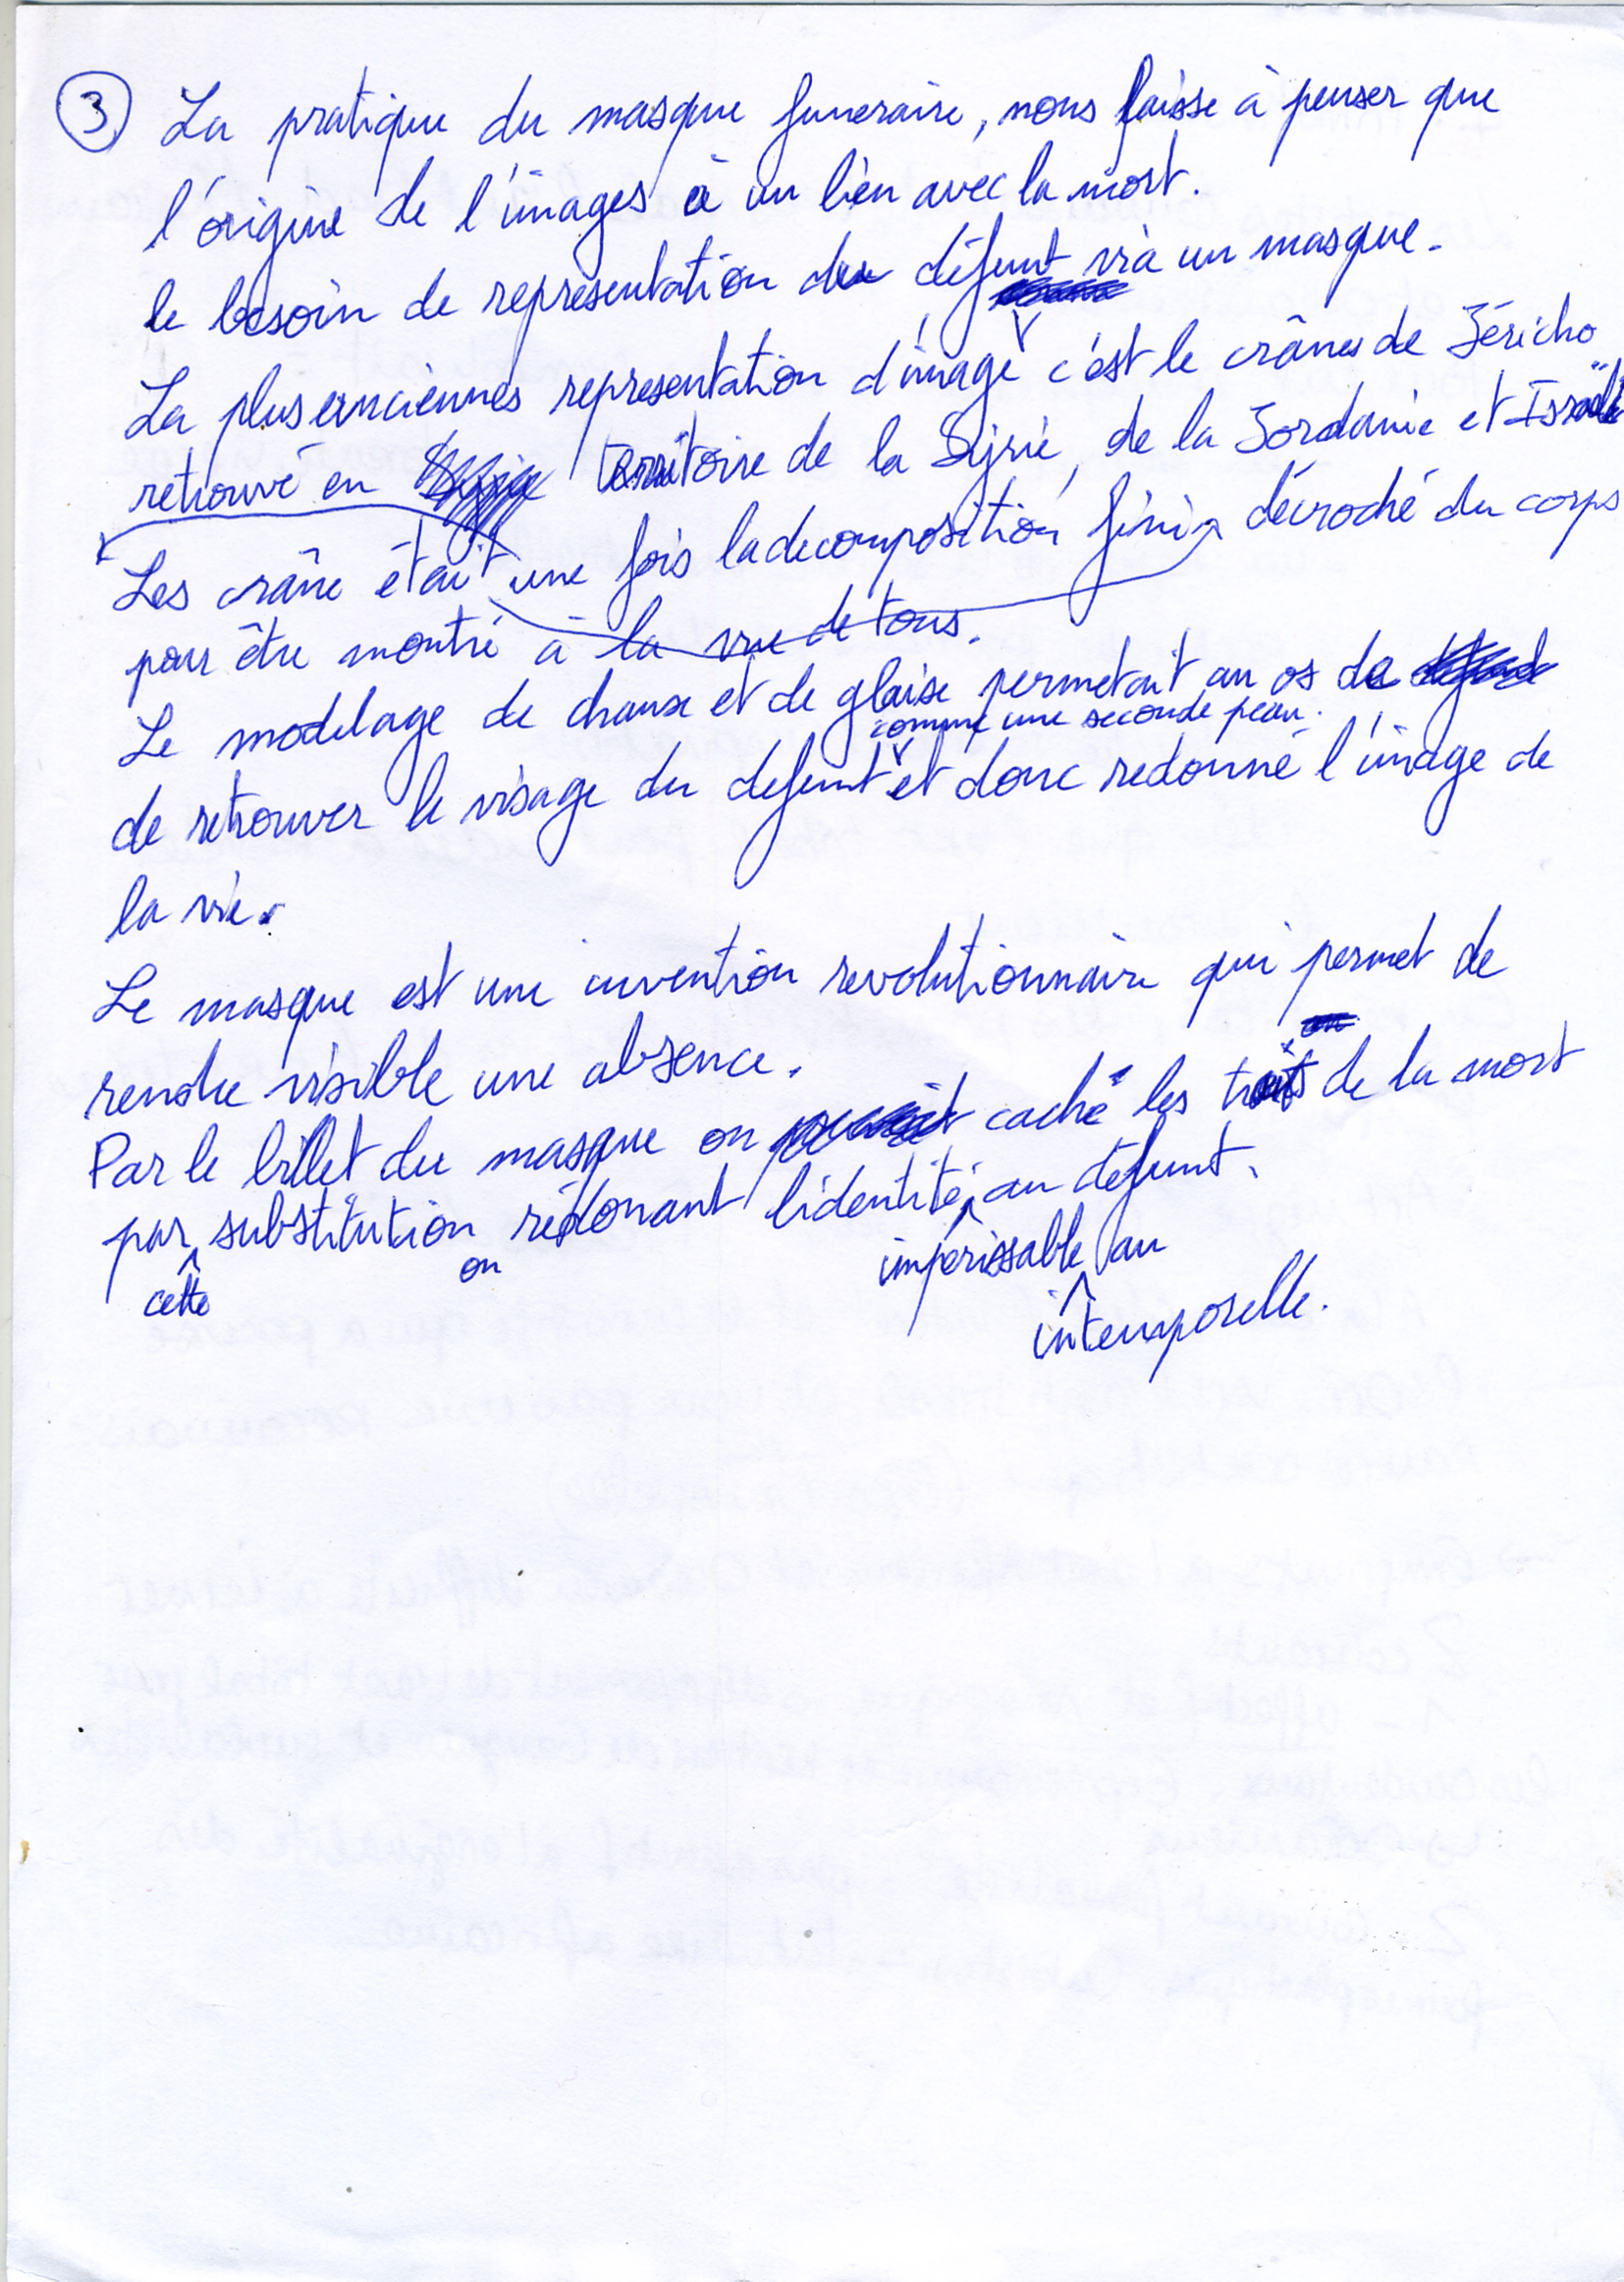 3 La pratique du masque funeraire, nous laisse à penser que
l'origine de l'images à un lien avec la mort.
le besoin de representation du défunt via un masque.
La plus anciennes representation d'image c'est le crânes de Jéricho
retrouvé en territoire de la Syrie, de la Jordanie et Israël
Les crâne était une fois la decomposition finie décroché du corps
pour être montré à la vue de tous.
Le modelage de chaux et de glaise permetait au os de
comme une seconde peau.
de retrouver le visage du defunt et donc redonné l'image de
la vie.
Le masque est une invention revolutionnaire qui permet de
rendre visible une absence.
Par le billet du masque on caché les traits de la mort
par substitution redonant l'identité au défunt.
cette on impérissable au
intemporelle.